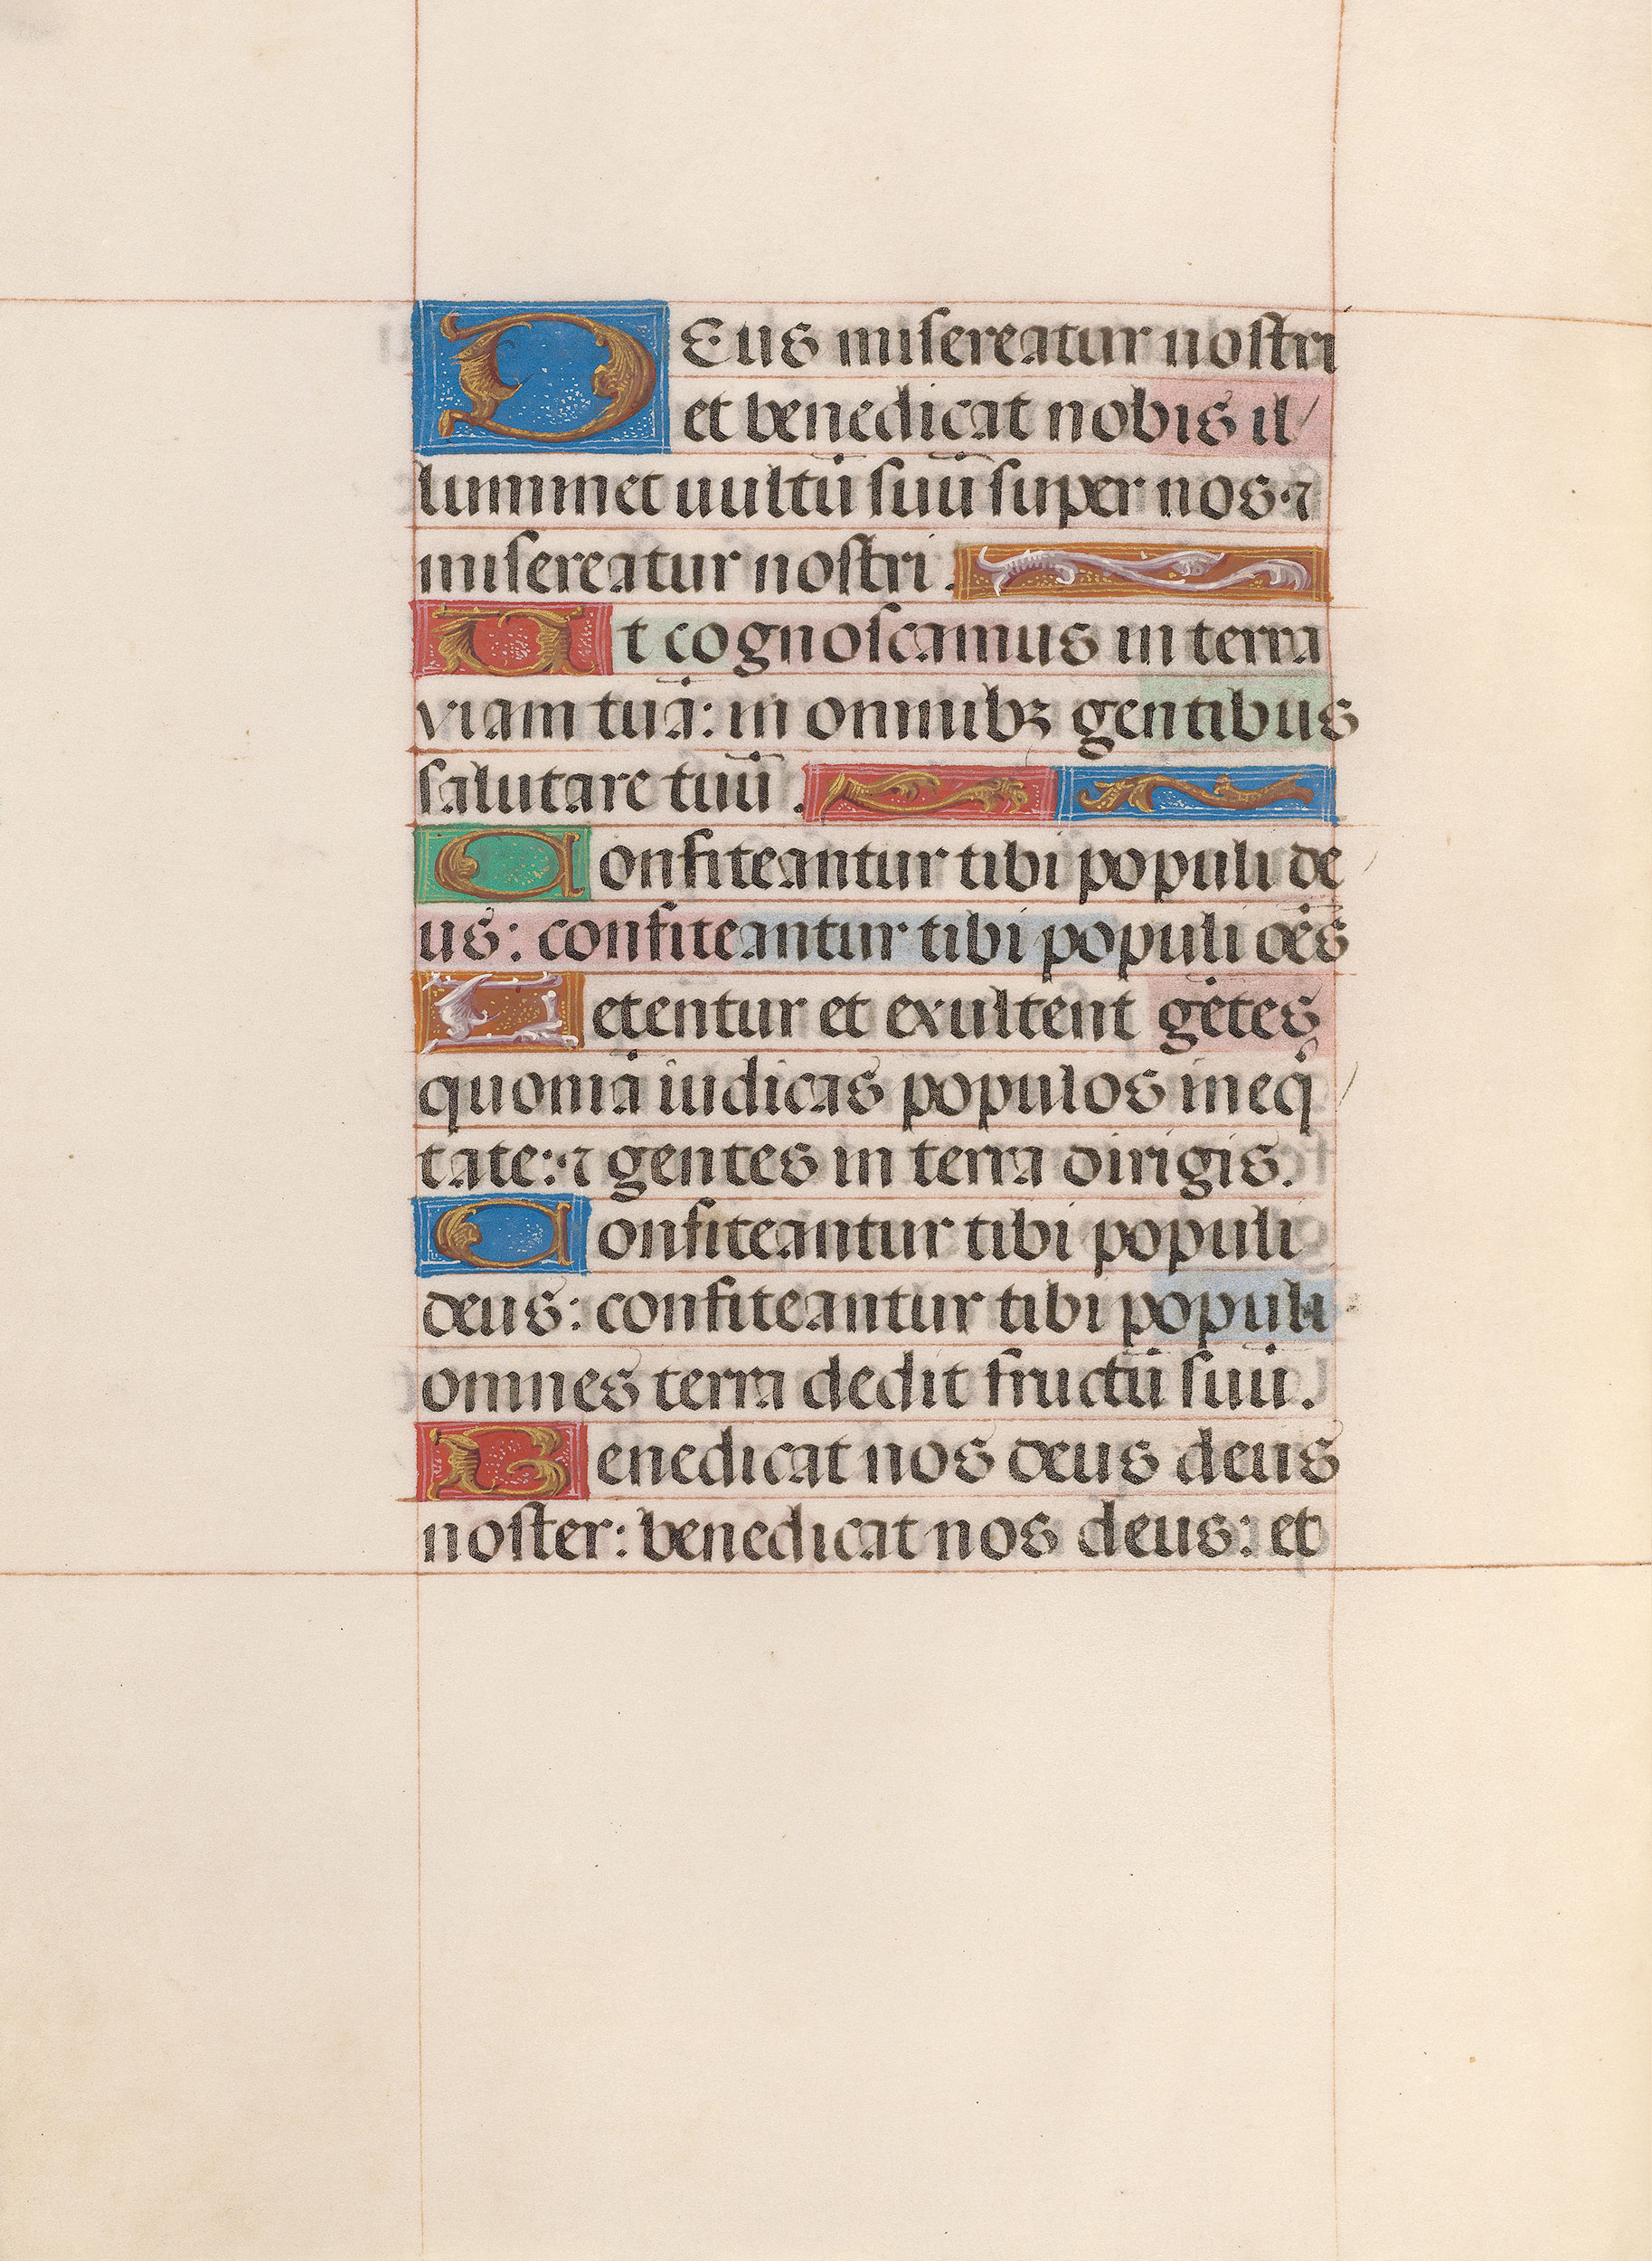 DEus misereatur nostri
et benedicat nobis il/
luminet uultū suū super nos ⁊
misereatur nostri.
Ut cognoscamus in terra
viam tuā: in omnibꝫ gentibus
salutare tuū.
Confiteantur tibi populi de
us: confiteantur tibi populi oēs
Letentur et exultent gētes
quoniā iudicas populos in eqͥ
tate: ⁊ gentes in terra dirigis.
Confiteantur tibi populi
deus: confiteantur tibi populi
omnes terra dedit fructū suū.
Benedicat nos deus deus
noster: benedicat nos deus: et